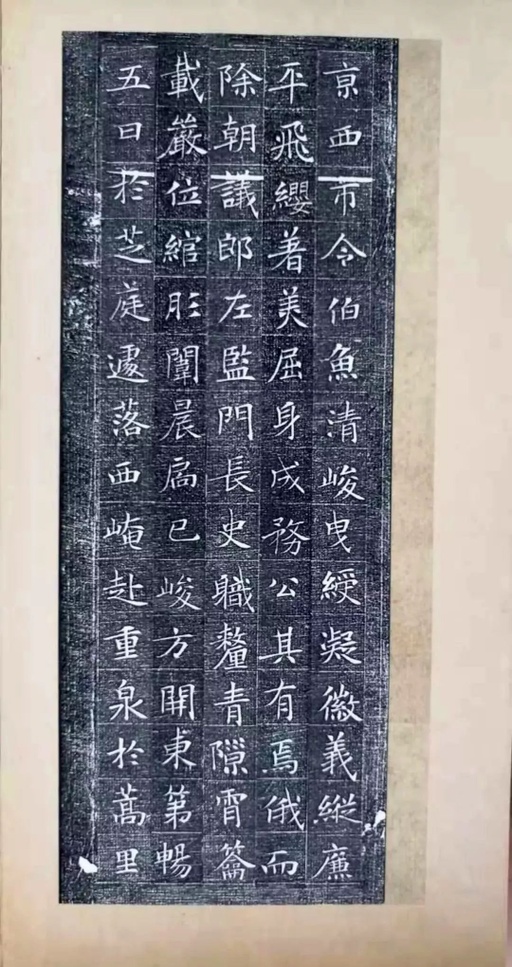 京西市令伯魚清峻曳綬凝徽義縱廉
平飛纓著美屈身成務公其有焉俄而
除朝議郎左監門長史職釐青隙霄籥
載嚴位綰彤闈晨扃已峻方開東第暢
五日於芝庭遽落西崦赴重泉於蒿里